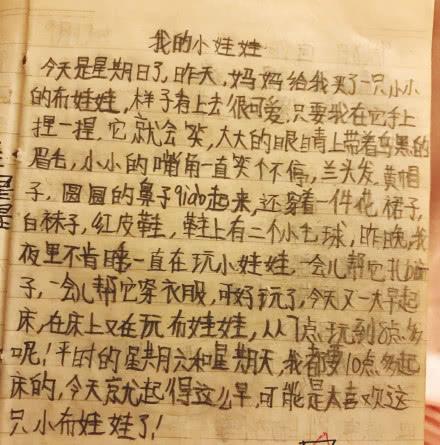 我的小娃娃
今天是星期日了,昨天,妈妈给我买了一只小小
的布娃娃,样子看上去很可爱,只要我在它手上
捏一捏,它就会笑,大大的眼睛上带着乌黑的
眉毛,小小的嘴角一直笑个不停,兰头发,黄帽
子,圆圆的鼻子qiao起来,还穿着一件花裙子,
白袜子,红皮鞋,鞋上有二个小毛球,昨晚,我
夜里不肯睡,一直在玩小娃娃,一会儿帮它扎b
子,一会儿帮它穿衣服,可好玩了,今天又一大早起
床,在床上又在玩布娃娃,从7点玩到8点多
呢!平时的星期六和星期天,我都要10点多起
床的,今天就起得这么早,可能是太喜欢这
只小布娃娃了!